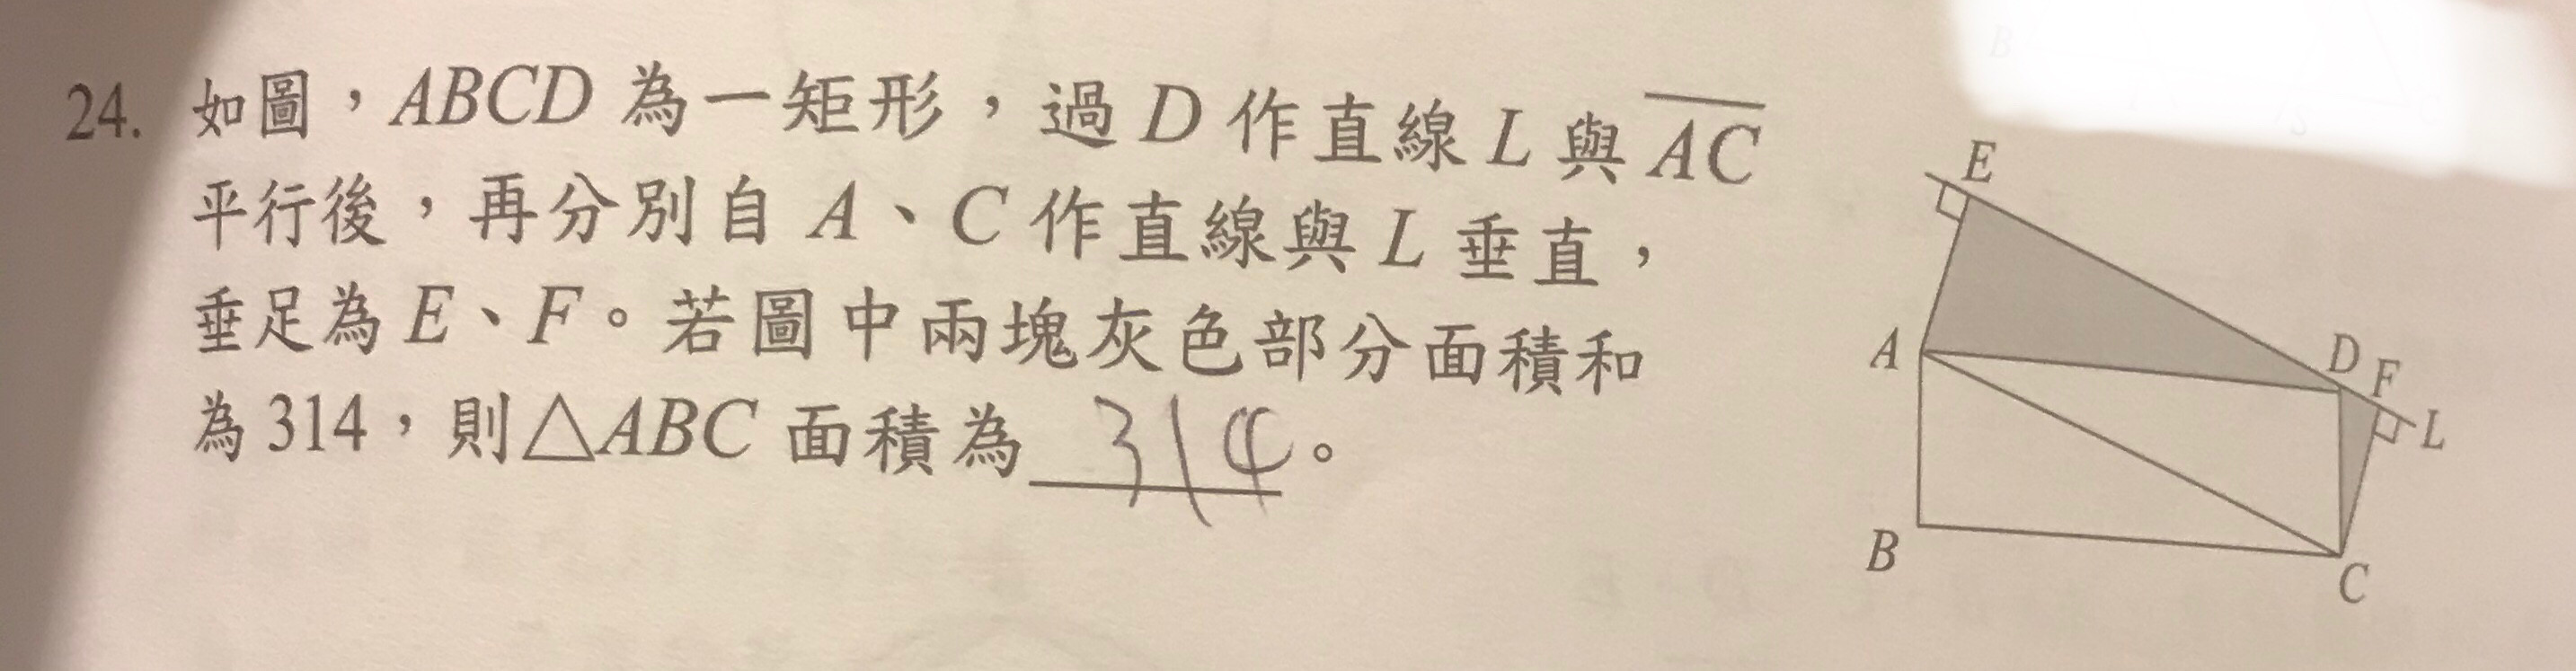 24. 如圖，ABCD 為一矩形，過 D 作直線 L 與 AC
平行後，再分別自 A、C 作直線與 L 垂直，
垂足為 E、F。若圖中兩塊灰色部分面積和
為 314，則△ABC 面積為 314。
E
A
D F
L
B
C